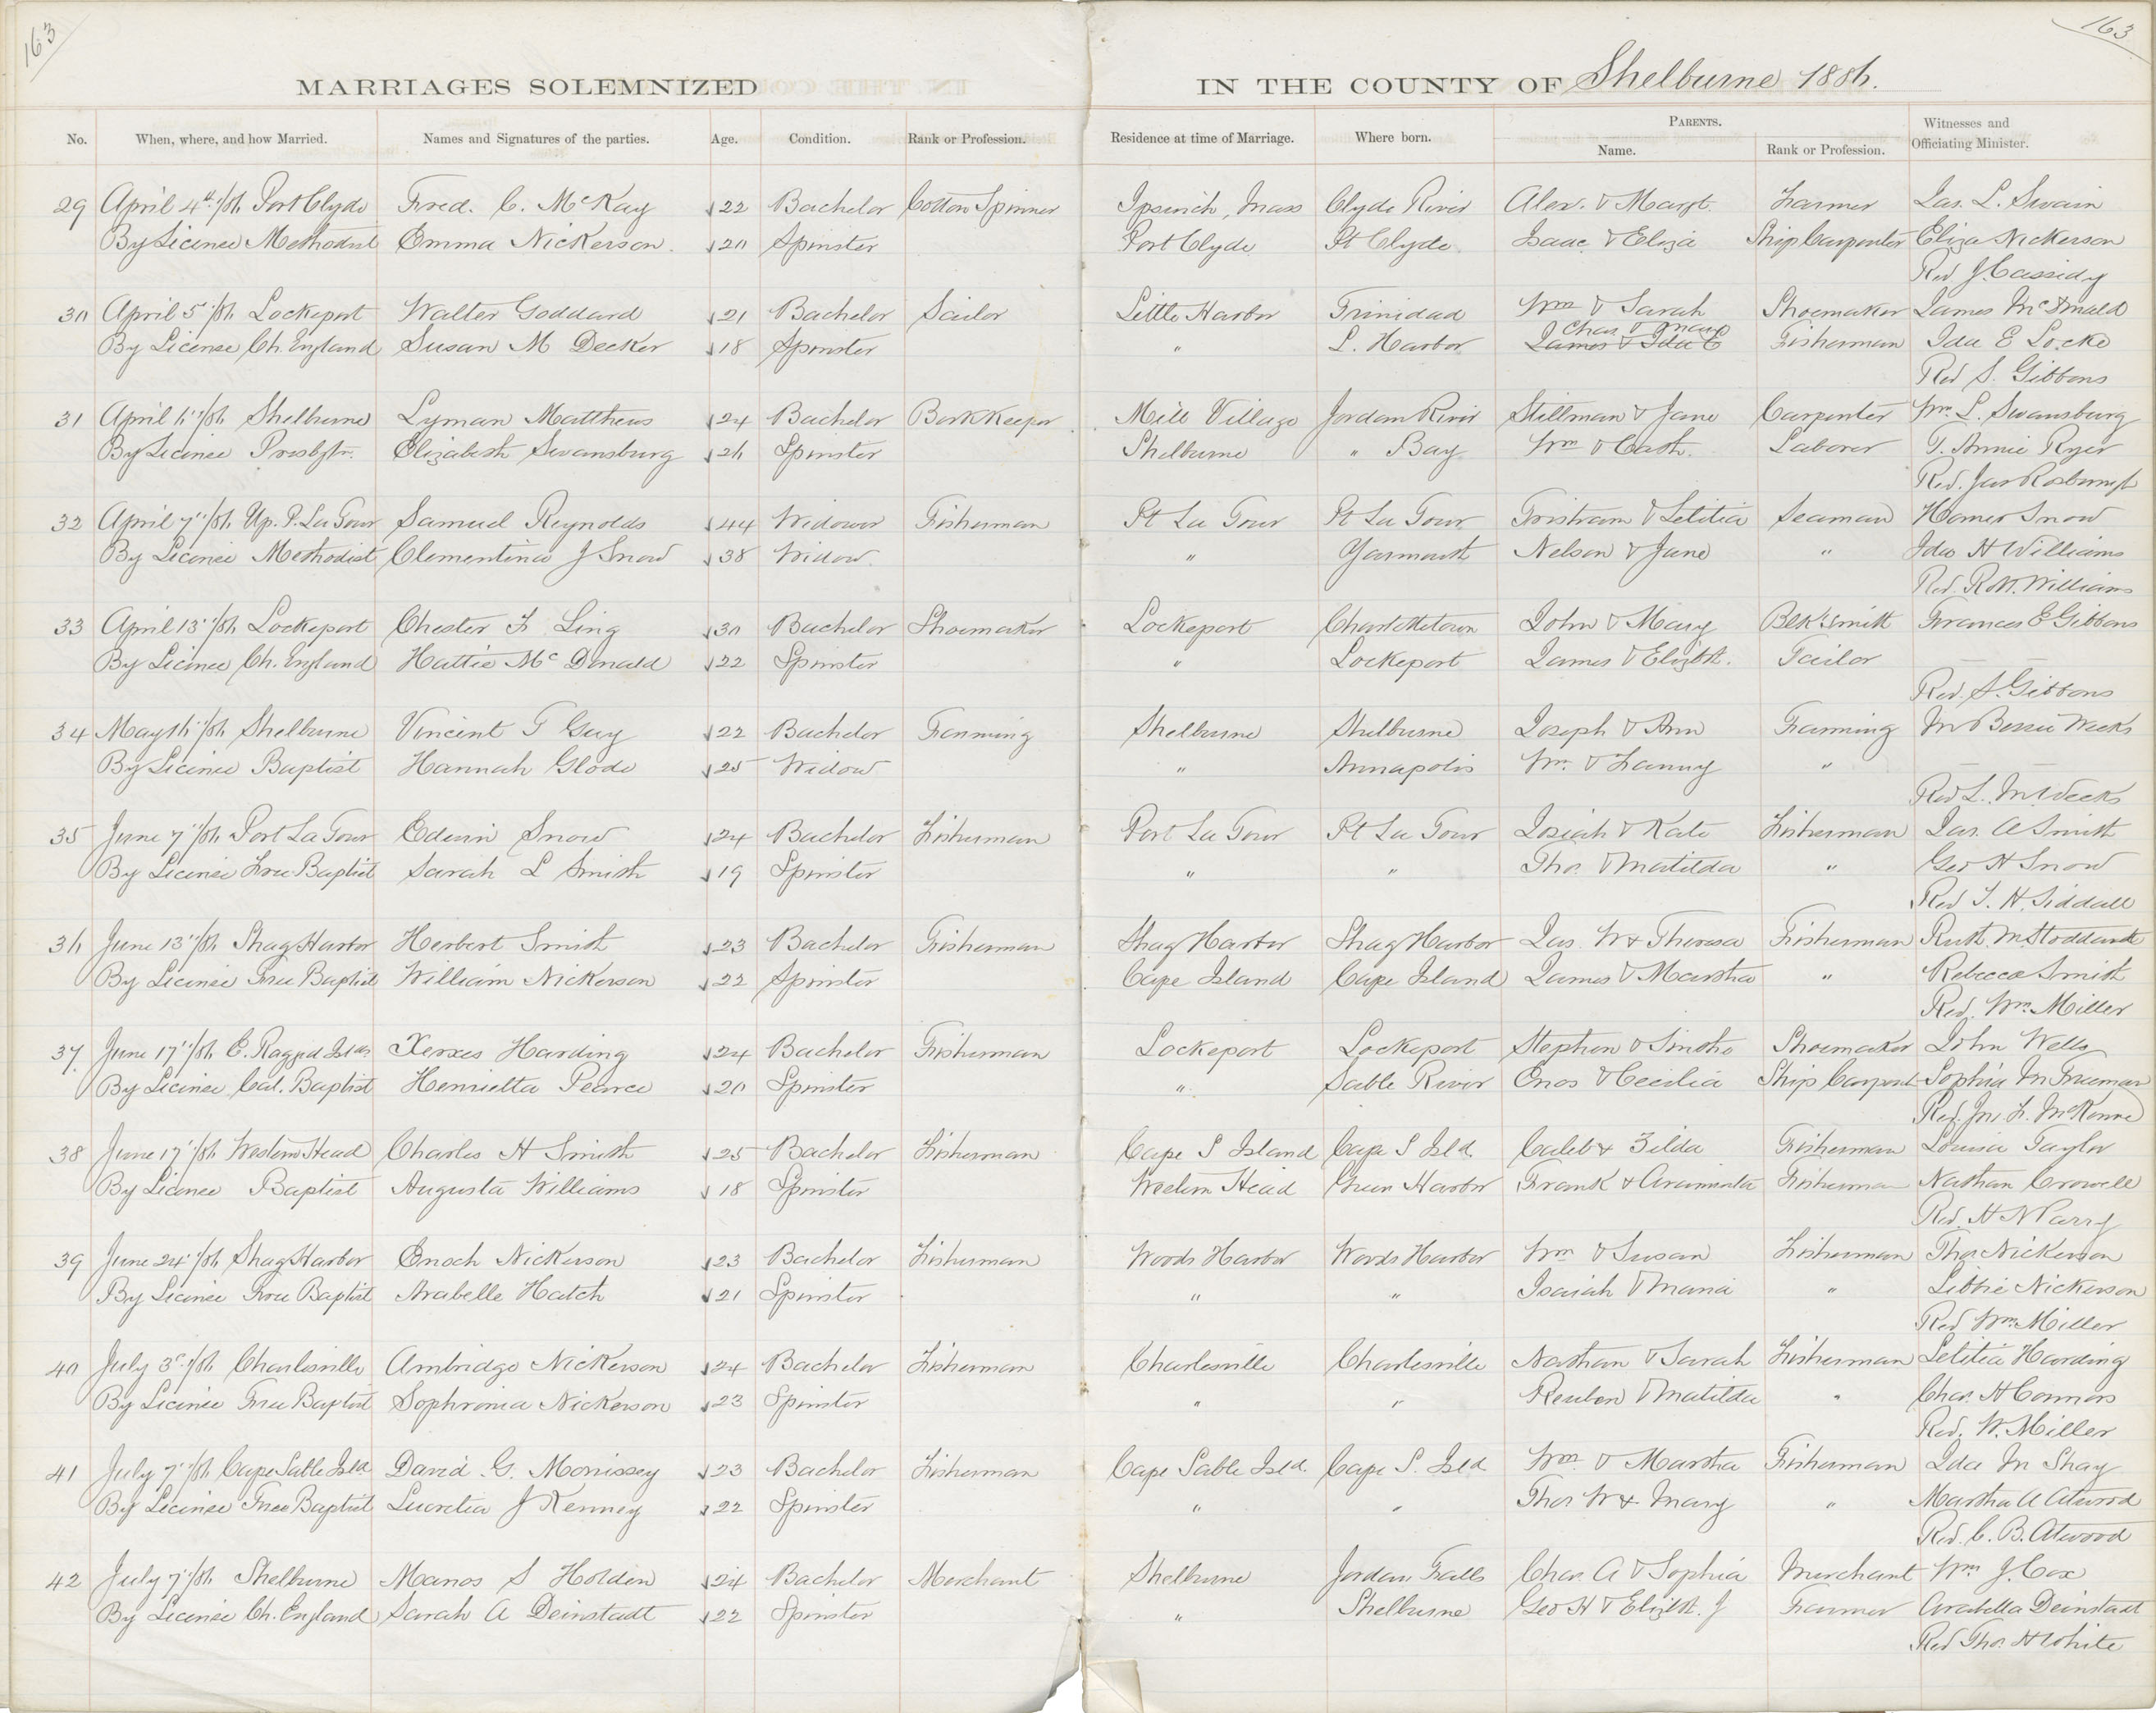 163
163
MARRIAGES SOLEMNIZED IN THE COUNTY OF Shelburne 1886.
No. When, where, and how Married. Names and Signatures of the parties. Age. Condition. Rank or Profession. Residence at time of Marriage. Where born. PARENTS. Name. Rank or Profession. Witnesses and Officiating Minister.
29 April 4th/86 Port Clyde Fred. C. McKay 22 Bachelor Cotton Spinner Ipswich, Mass Clyde River Alex. & Margt. Farmer Jas. L. Swain
By Licence Methodist Emma Nickerson 20 Spinster Port Clyde Pt Clyde Isaac & Eliza Ship Carpenter Eliza Nickerson
Rev J. Cassidy
30 April 5"/86 Lockeport Walter Goddard 21 Bachelor Sailor Little Harbor Trinidad Wm & Sarah Shoemaker James McDonald
Chas. & Mary
By License Ch. England Susan M Decker 18 Spinster " L. Harbor James & Ida E Fisherman Ida E Locke
Rev S. Gibbons
31 April 6"/86 Shelburne Lyman Matthews 24 Bachelor Bookkeeper Mill Village Jordan River Stillman & Jane Carpenter Wm. L. Swansburg
By Licence Presbytn. Elizabeth Swansburg 26 Spinster Shelburne " Bay Wm & Cath. Laborer T. Annie Ryer
Rev. Jas
32 April 7"/86 Up. P. La Tour Samuel Reynolds 44 Widower Fisherman Pt La Tour Pt La Tour Tristram & Letitia Seaman Homer Snow
By Licence Methodist Clementina J Snow 38 Widow " Yarmouth Nelson & Jane " Ida H Williams
Rev. Robt. Williams
33 April 13"/86 Lockeport Chester F Ling 30 Bachelor Shoemaker Lockeport Charlottetown John & Mary Blk. Smith Frances E Gibbons
By Licence Ch. England Hattie McDonald 22 Spinster " Lockeport James & Elizbt. Tailor
Rev. S. Gibbons
34 May 16"/86 Shelburne Vincent T Guy 22 Bachelor Farming Shelburne Shelburne Joseph & Ann Farming M Bessie Weeks
By Licence Baptist Hannah Glode 25 Widow " Annapolis Wm. & Fanny "
Rev L. M. Weeks
35 June 7"/86 Port La Tour Edwin Snow 24 Bachelor Fisherman Port La Tour Pt La Tour Josiah & Kate Fisherman Jas. A Smith
By Licence Free Baptist Sarah L Smith 19 Spinster " " Thos. & Matilda " Geo H Snow
Rev T. H. Siddall
36 June 13"/86 Shag Harbor Herbert Smith 23 Bachelor Fisherman Shag Harbor Shag Harbor Jas. W & Theresa Fisherman Ruth M Stoddard
By Licence Free Baptist William Nickerson 22 Spinster Cape Island Cape Island James & Martha " Rebecca Smith
Rev. Wm. Miller
37 June 17"/86 E. Ragged Islds Xerxes Harding 24 Bachelor Fisherman Lockeport Lockeport Stephen & Shoemaker John Wells
By Licence Cal. Baptist Henrietta Pearce 20 Spinster " Sable River Enos & Cecilia Ship Carpent Sophia M Freeman
Rev. Jn. F. McKenna
38 June 17"/86 Western Head Charles H Smith 25 Bachelor Fisherman Cape S Island Cape S Isld. Caleb & Zilda Fisherman Louisa Taylor
By Licence Baptist Augusta Williams 18 Spinster Western Head Green Harbor Frank & Araminta Fisherman Nathan Crowell
Rev. H N Parry
39 June 24"/86 Shag Harbor Enoch Nickerson 23 Bachelor Fisherman Woods Harbor Woods Harbor Wm & Susan Fisherman Thos Nickerson
By Licence Free Baptist Arabelle Hatch 21 Spinster " " Isaiah & Maria " Libbie Nickerson
Rev Wm. Miller
40 July 3"/86 Charlesville Ambridge Nickerson 24 Bachelor Fisherman Charlesville Charlesville Nathan & Sarah Fisherman Letitia Harding
By Licence Free Baptist Sophronia Nickerson 23 Spinster " " Reuben & Matilda " Chas. H Connors
Rev. W. Miller
41 July 7"/86 Cape Sable Isld. David G. Morrissey 23 Bachelor Fisherman Cape Sable Isld. Cape S. Isld Wm. & Martha Fisherman Ida M Shay
By Licence Free Baptist Lucretia J Kenney 22 Spinster " " Thos W & Mary " Martha A Atwood
Rev. C. B. Atwood
42 July 7"/86 Shelburne Manos S Holden 24 Bachelor Merchant Shelburne Jordan Falls Chas. A & Sophia Merchant Wm. J. Cox
By Licence Ch. England Sarah A Deinstadt 22 Spinster " Shelburne Geo H & Elizbt. J Farmer Arabella Deinstadt
Rev Thos. H White